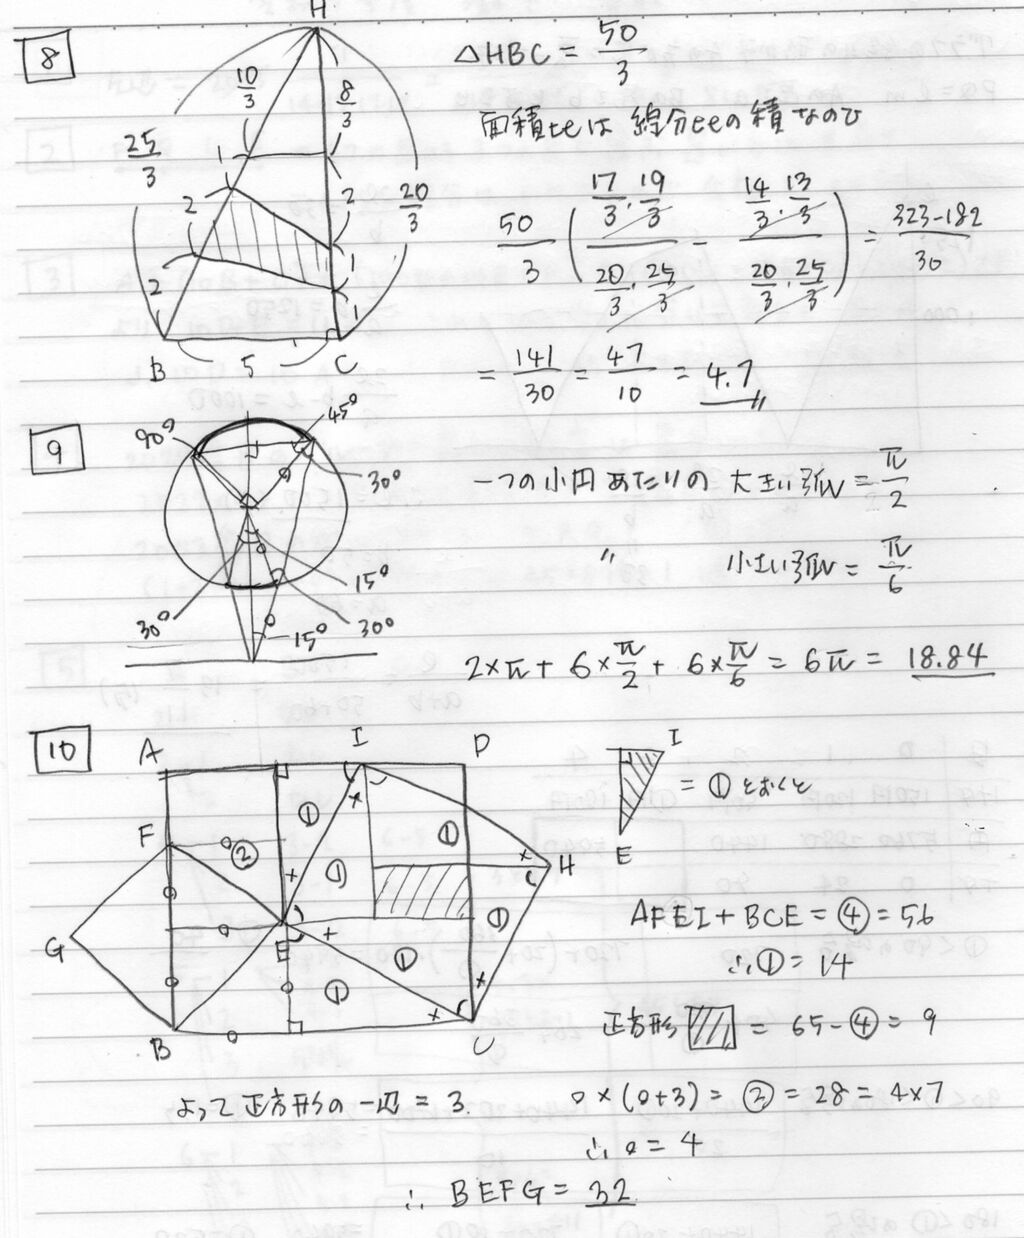 8
H
10/3
8/3
25/3
20/3
1
1
2
2
2
1
1
B
5
C
△HBC = 50/3
面積比は線分比の積なので
50/3 ( (17/3・19/3)/(20/3・25/3) - (14/3・13/3)/(20/3・25/3) ) = (323-182)/30
= 141/30 = 47/10 = 4.7
9
90°
45°
30°
15°
30°
15°
30°
一つの小円あたりの 大きい弧 = π/2
〃 小さい弧 = π/6
2×π + 6×π/2 + 6×π/6 = 6π = 18.84
10
A
I
D
F
②
①
①
①
H
G
E
①
①
①
B
C
I
= ①とおくと
E
AFEI + BCE = ④ = 56
∴ ① = 14
正方形 = 65 - ④ = 9
よって正方形の一辺 = 3.
○×(○+3) = ② = 28 = 4×7
∴ ○ = 4
∴ BEFG = 32